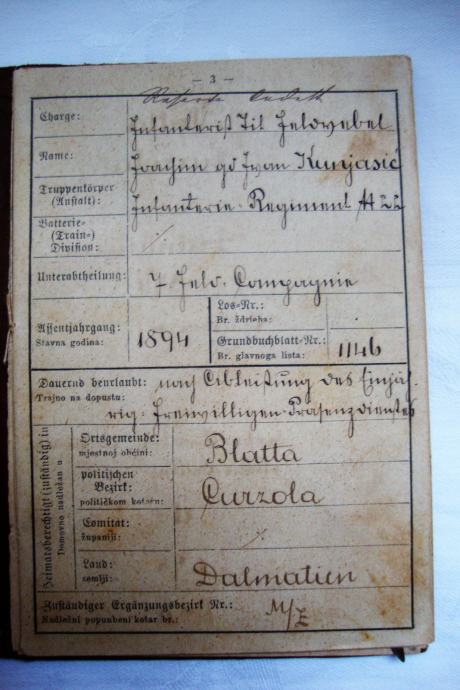 — 3 —
Reserve Cadett
Charge: Infanterist Tit Feldwebel
Name: Joachim gd Ivan Kunjasić
Truppenkörper (Anstalt): Infanterie-Regiment № 22
Batterie- (Train-) Division: ./.
Unterabtheilung: 7. Feld-Compagnie
Assentjahrgang: 1894
Stavna godina:
Los-Nr.:
Br. ždrieba:
Grundbuchblatt-Nr.: 1146
Br. glavnoga lista:
Dauernd beurlaubt: nach Ableistung des Einjäh-
Trajno na dopustu: rig-Freiwilligen-Präsenzdienstes
Heimatsberechtigt (zuständig) in
Domovno nadležan u
Ortsgemeinde: Blatta
mjestnoj obćini:
politischen Bezirk: Curzola
političkom kotaru:
Comitat: ./.
županiji:
Land: Dalmatien
zemlji:
Zuständiger Ergänzungsbezirk Nr.:
Nadležni popunbeni kotar br.: